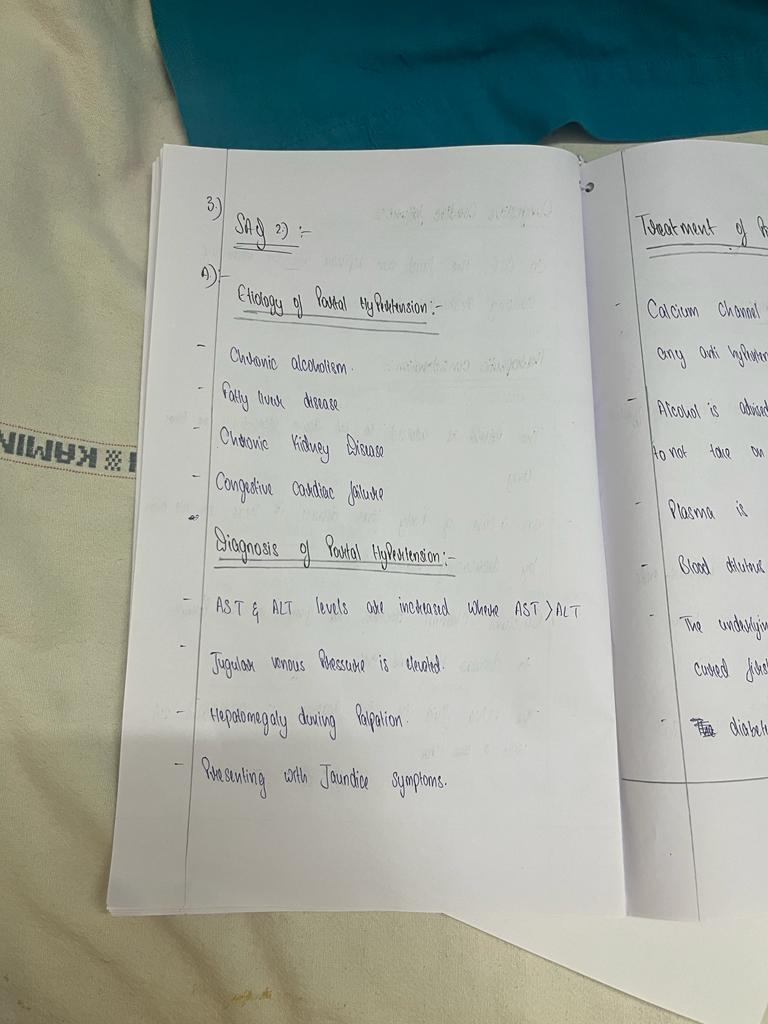 3.)
SAQ 2) :-
A):-
Etiology of Portal Hypertension:-
- Chronic alcoholism.
- Fatty liver disease
- Chronic Kidney Disease
- Congestive cardiac failure
Diagnosis of Portal Hypertension:-
- AST & ALT levels are increased where AST > ALT
- Jugular venous Pressure is elevated.
- Hepatomegaly during Palpation.
- Presenting with Jaundice symptoms.
Treatment of
- Calcium channel
any anti
- Alcohol is
to not take
- Plasma is
- Blood
- The
cured
-
KAMIN